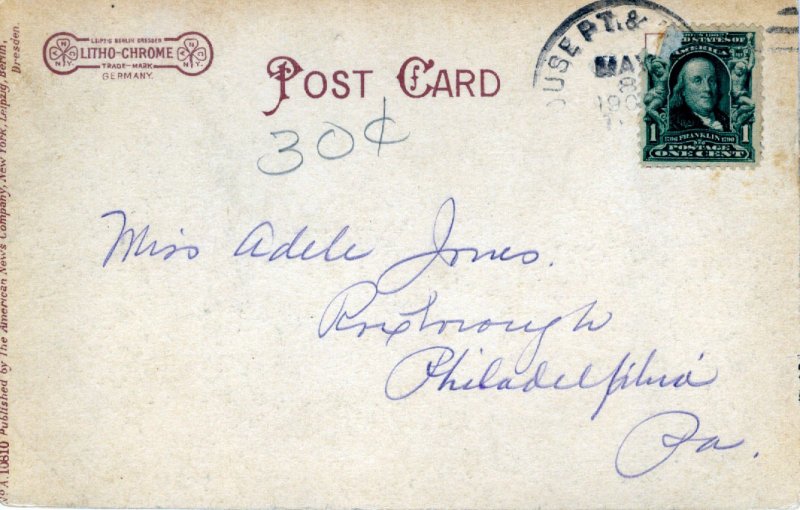 LEIPZIG BERLIN DRESDEN
LITHO-CHROME
TRADE-MARK
GERMANY.
POST CARD
30¢
MAY
8
UNITED STATES OF
AMERICA
1 FRANKLIN 1
POSTAGE
ONE CENT
Miss Adele Jones.
Roxborough
Philadelphia
Pa.
No A.10810 Published by The American News Company, New York, Leipzig, Berlin,
Dresden.